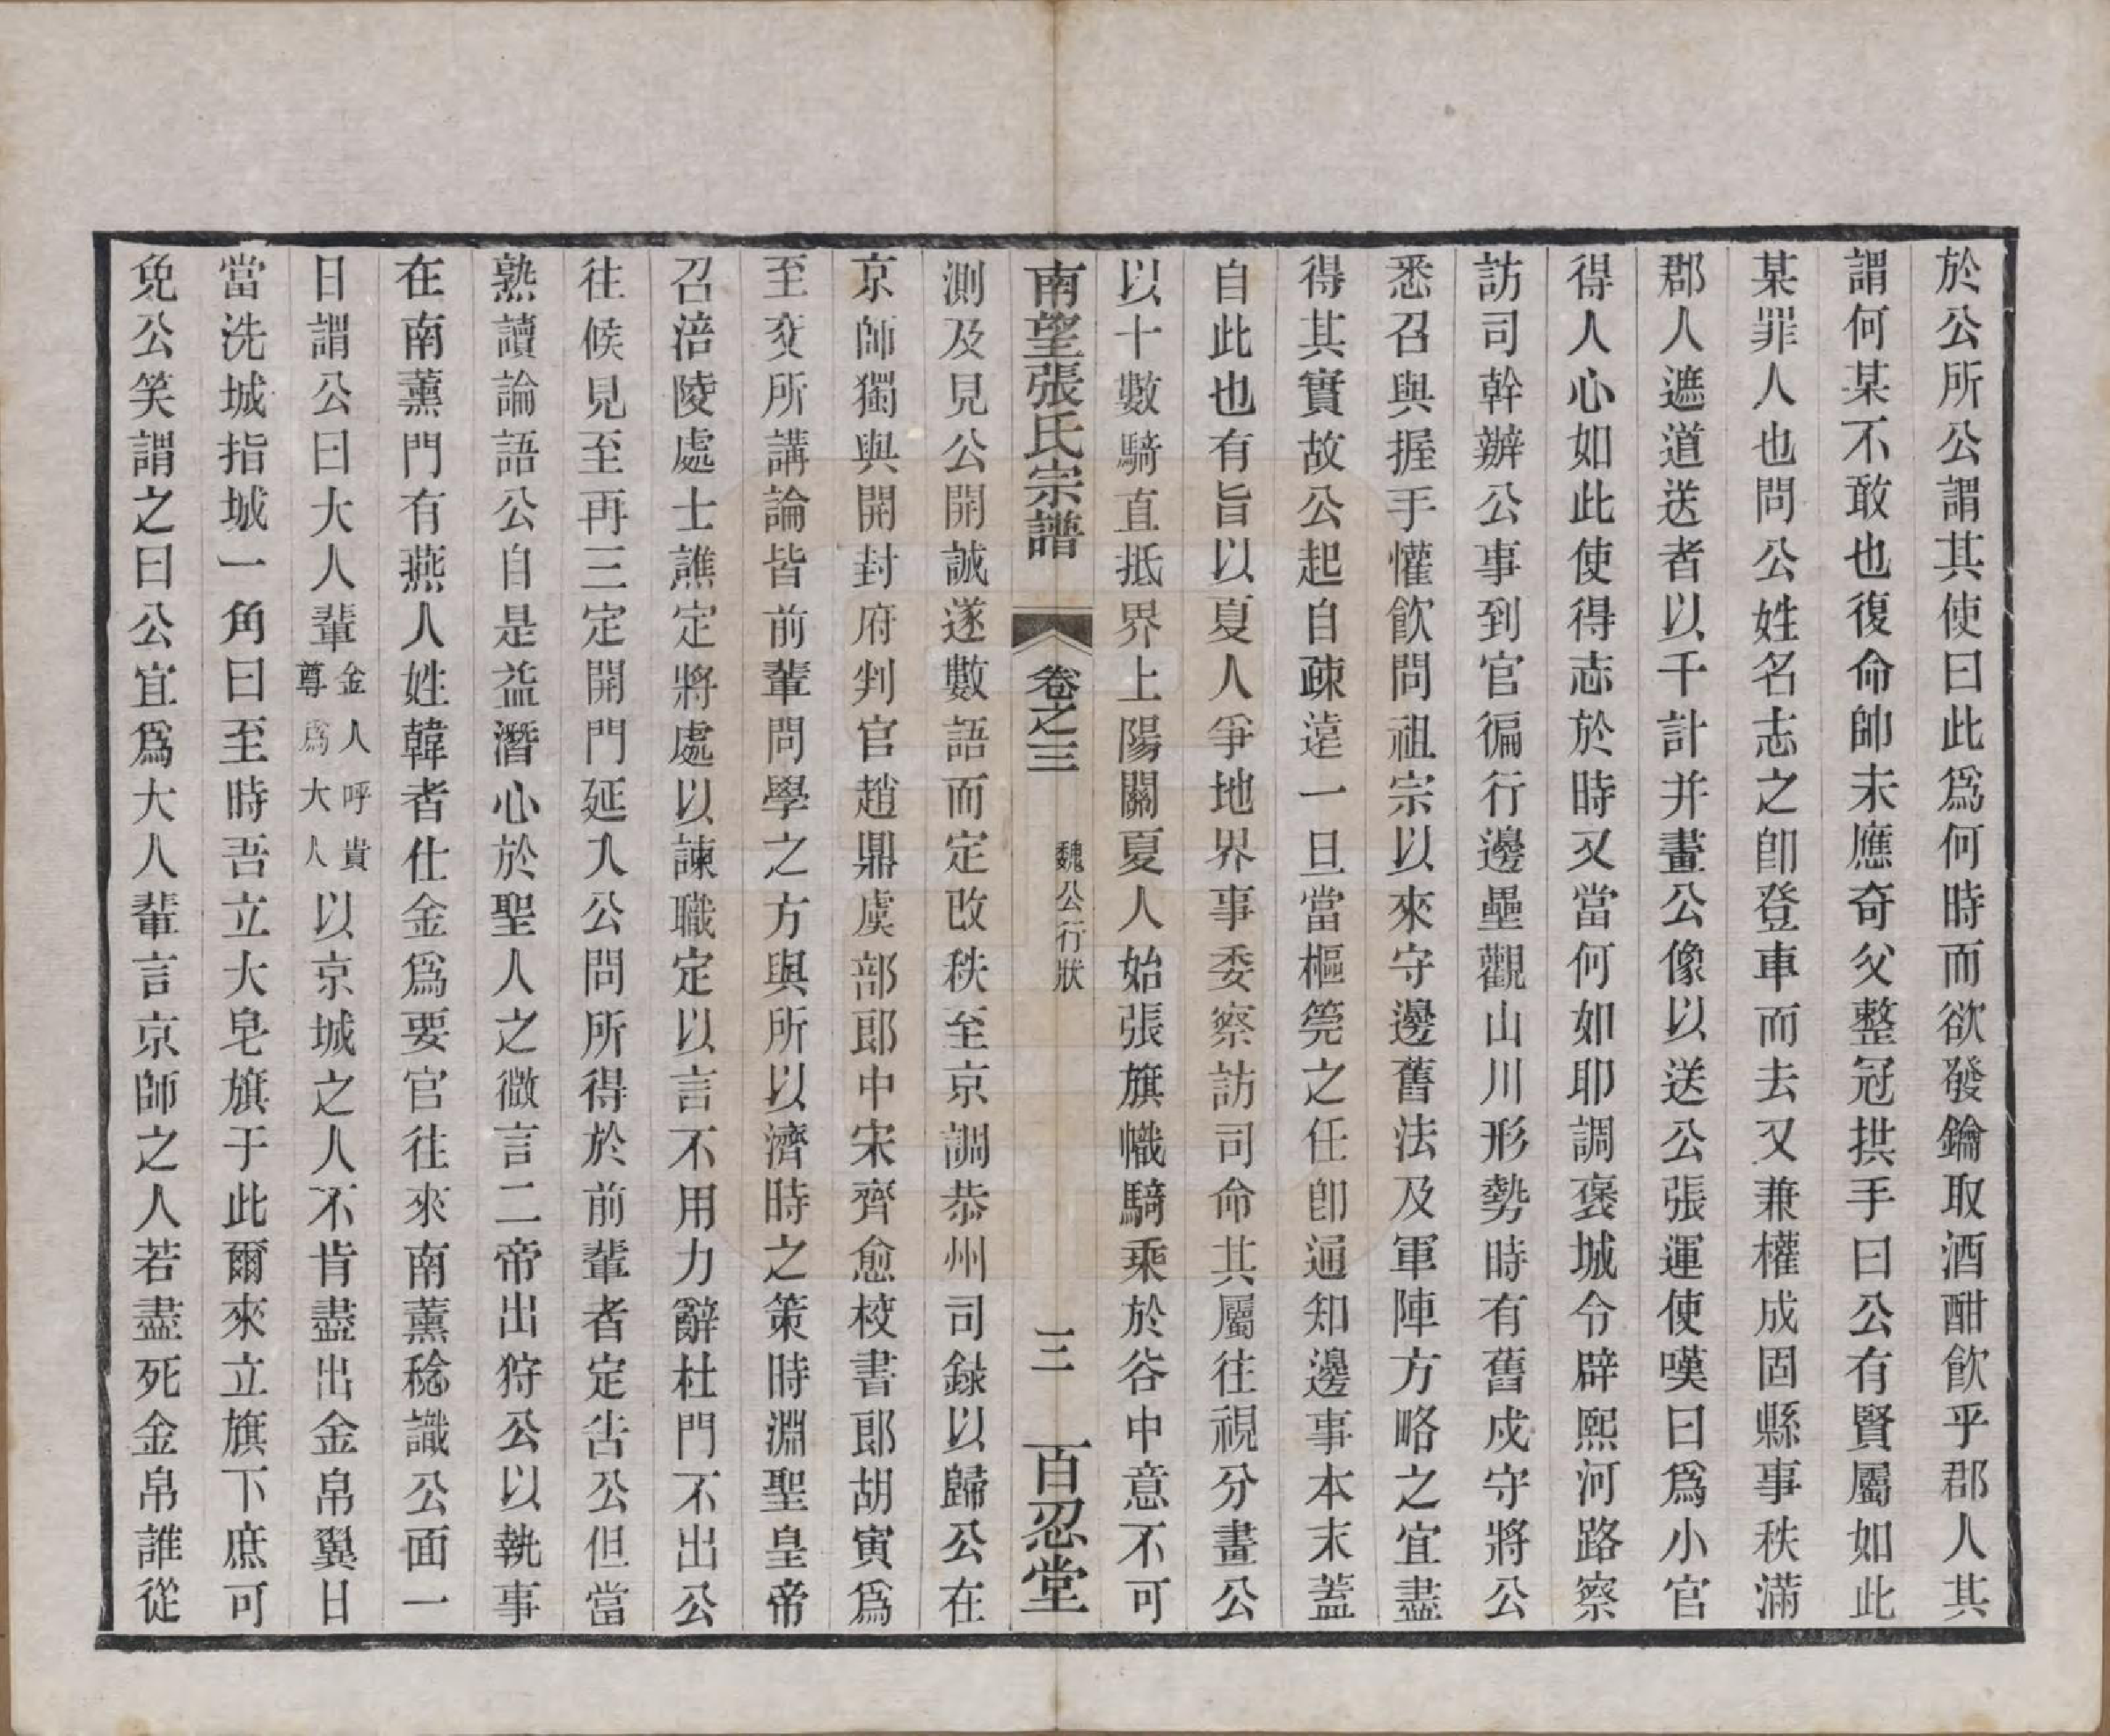 於公所公謂其使曰此爲何時而欲發鑰取酒酣飲乎郡人其
謂何某不敢也復命帥未應奇父整冠拱手曰公有賢屬如此
某罪人也問公姓名志之卽登車而去又兼權成固縣事秩滿
郡人遮道送者以千計并畫公像以送公張運使嘆曰爲小官
得人心如此使得志於時又當何如耶調褒城令辟熙河路察
訪司幹辦公事到官徧行邊壘觀山川形勢時有舊戍守將公
悉召與握手懽飲問祖宗以來守邊舊法及軍陣方略之宜盡
得其實故公起自疎遠一旦當樞筦之任卽通知邊事本末蓋
自此也有旨以夏人爭地界事委察訪司命其屬往視分畫公
以十數騎直抵界上陽關夏人始張旗幟騎乘於谷中意不可
南望張氏宗譜 卷之三 魏公行狀 三 百忍堂
測及見公開誠遂數語而定改秩至京調恭州司錄以歸公在
京師獨與開封府判官趙鼎虞部郎中宋齊愈校書郎胡寅爲
至交所講論皆前輩問學之方與所以濟時之策時淵聖皇帝
召涪陵處士譙定將處以諫職定以言不用力辭杜門不出公
往候見至再三定開門延入公問所得於前輩者定告公但當
熟讀論語公自是益潛心於聖人之微言二帝出狩公以執事
在南薰門有燕人姓韓者仕金爲要官往來南薰稔識公面一
日謂公曰大人輩金人呼貴尊爲大人以京城之人不肯盡出金帛翼日
當洗城指城一角曰至時吾立大皂旗于此爾來立旗下庶可
免公笑謂之曰公宜爲大人輩言京師之人若盡死金帛誰從